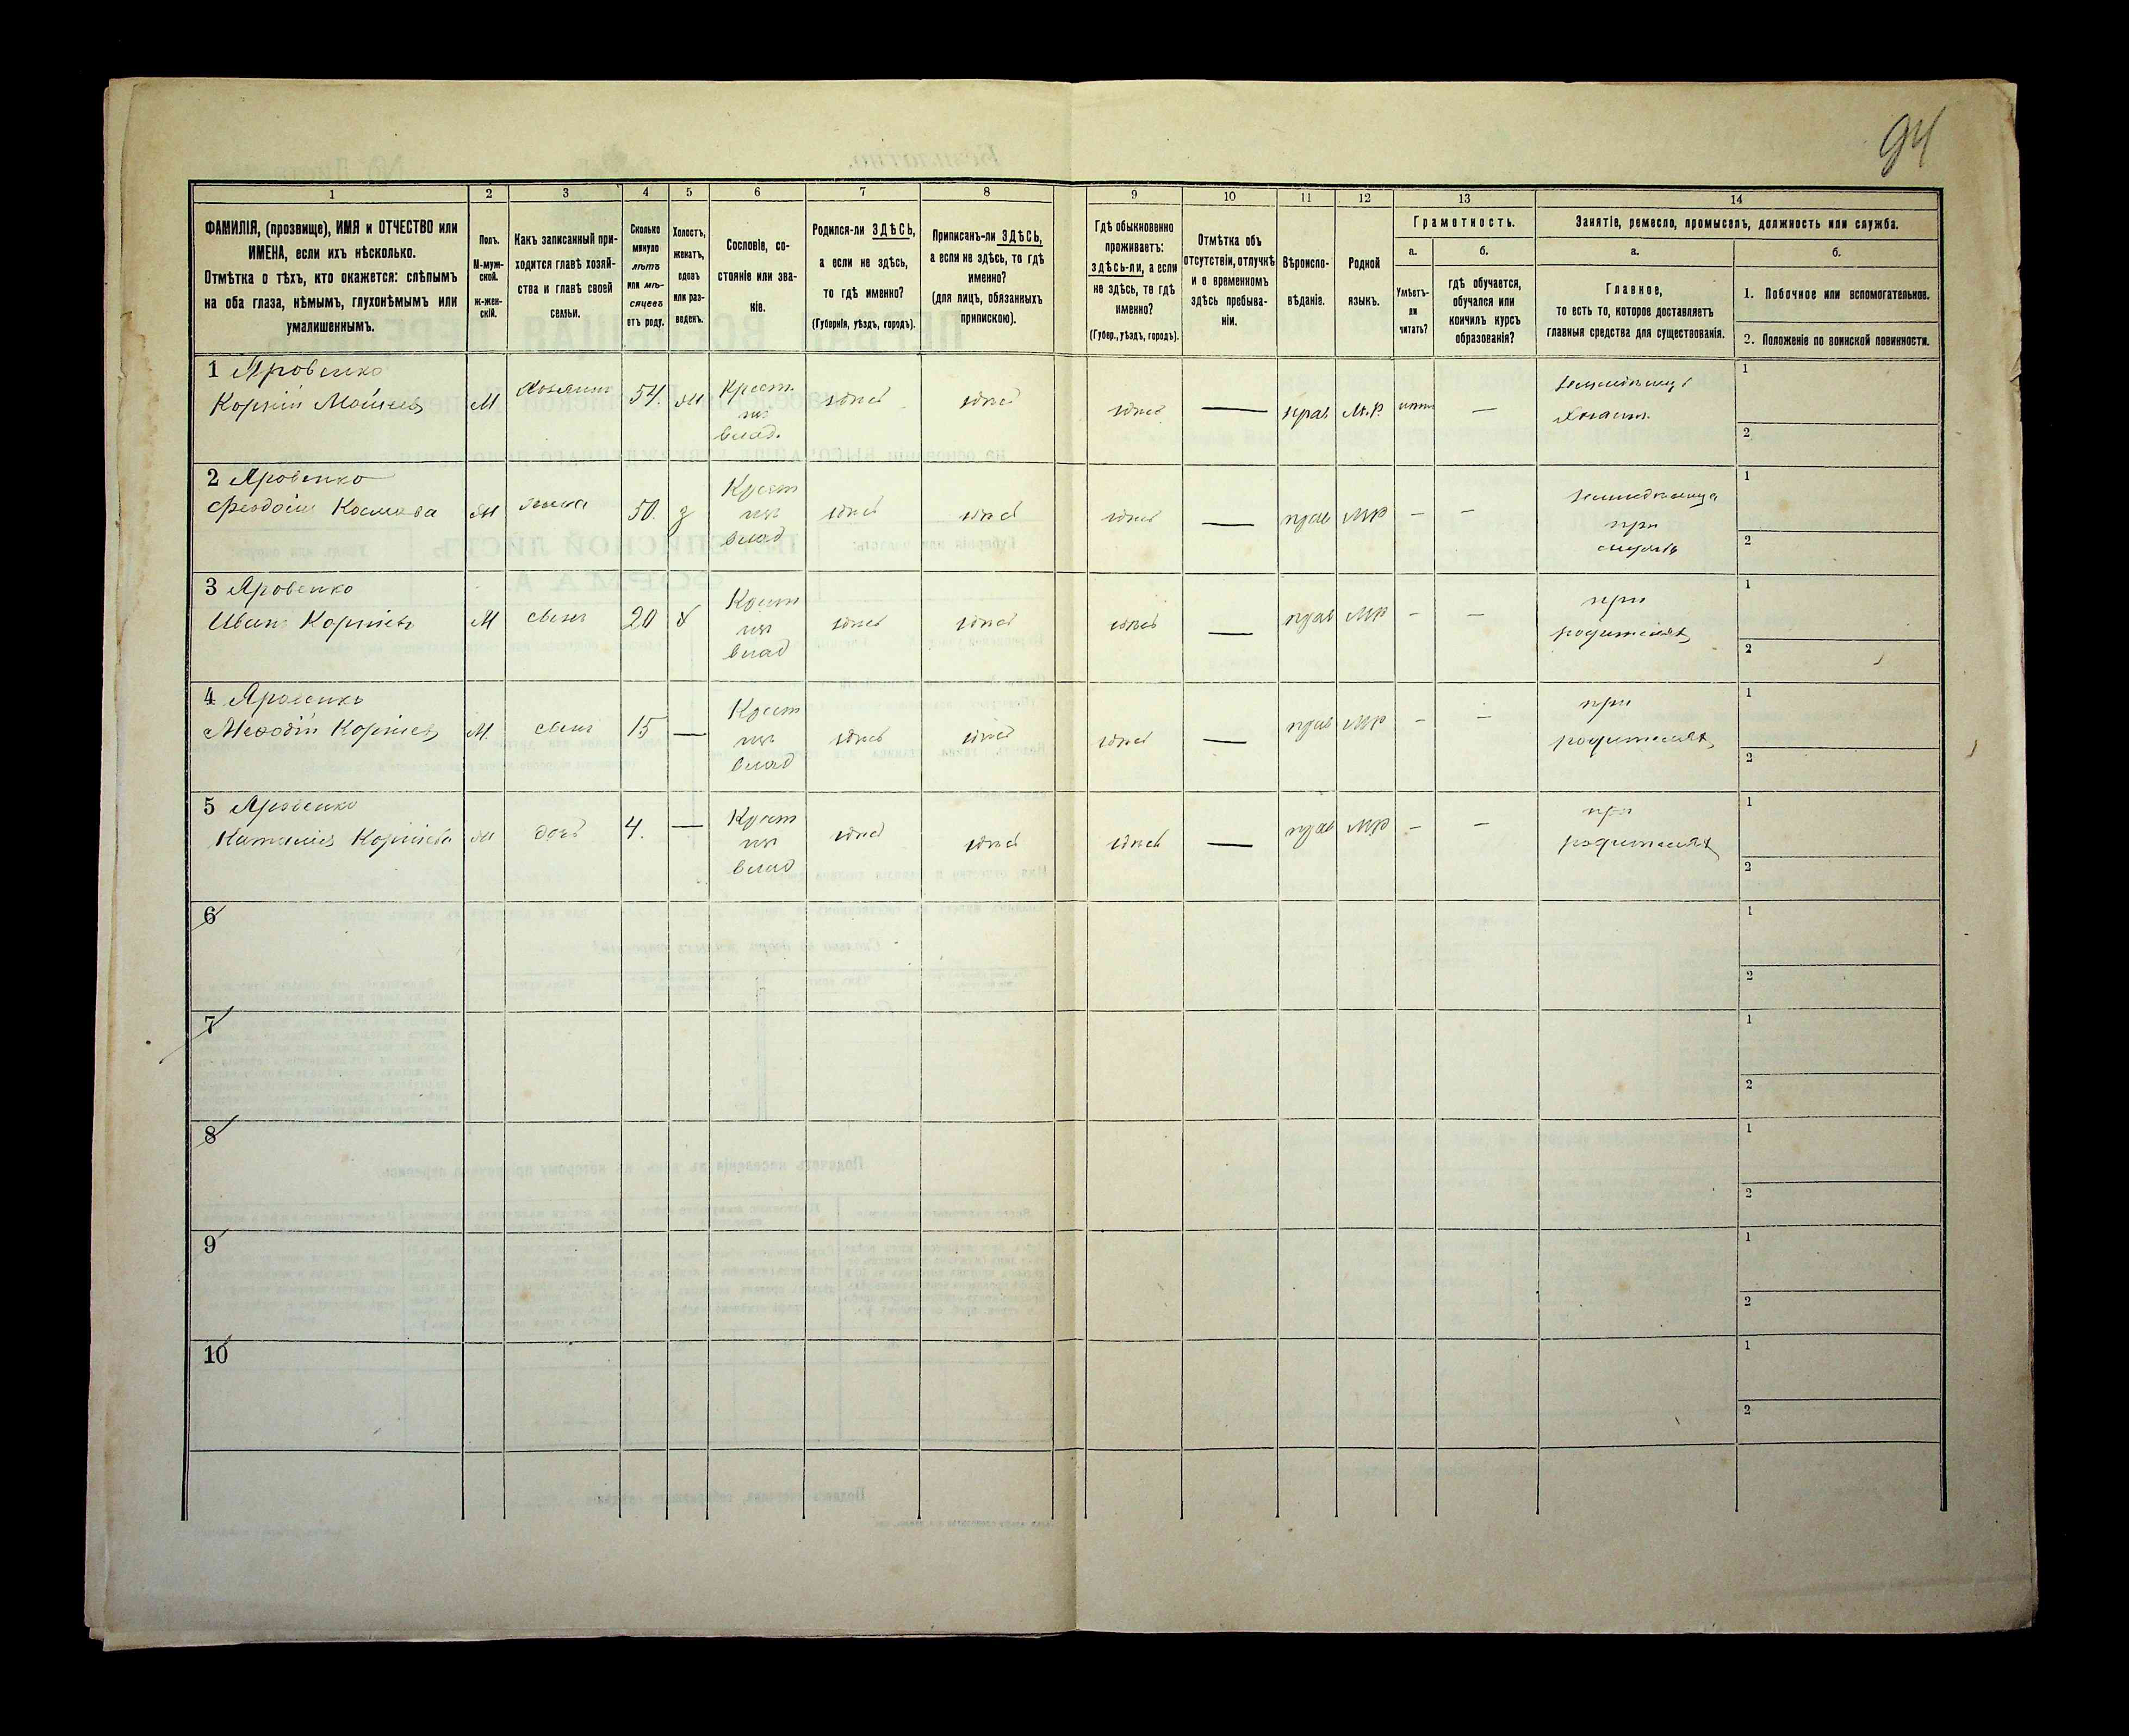 94
1
2
3
4
5
6
7
8
9
10
11
12
13
14
ФАМИЛІЯ, (прозвище), ИМЯ и ОТЧЕСТВО или
ИМЕНА, если ихъ нѣсколько.
Отмѣтка о тѣхъ, кто окажется: слѣпымъ
на оба глаза, нѣмымъ, глухонѣмымъ или
умалишеннымъ.
Полъ.
М-муж-
ской.
ж-жен-
скій.
Какъ записанный при-
ходится главѣ хозяй-
ства и главѣ своей
семьи.
Сколько
минуло
лѣтъ
или мѣ-
сяцевъ
отъ роду.
Холостъ,
женатъ,
вдовъ
или раз-
веденъ.
Сословіе, со-
стояніе или зва-
ніе.
Родился-ли ЗДѢСЬ,
а если не здѣсь,
то гдѣ именно?
(Губернія, уѣздъ, городъ).
Приписанъ-ли ЗДѢСЬ,
а если не здѣсь, то гдѣ
именно?
(для лицъ, обязанныхъ
припискою).
Гдѣ обыкновенно
проживаетъ:
здѣсь-ли, а если
не здѣсь, то гдѣ
именно?
(Губер., уѣздъ, городъ).
Отмѣтка объ
отсутствіи, отлучкѣ
и о временномъ
здѣсь пребыва-
ніи.
Вѣроиспо-
вѣданіе.
Родной
языкъ.
Грамотность.
а.
б.
Умѣетъ-
ли
читать?
гдѣ обучается,
обучался или
кончилъ курсъ
образованія?
Занятіе, ремесло, промыселъ, должность или служба.
а.
б.
Главное,
то есть то, которое доставляетъ
главныя средства для существованія.
1. Побочное или вспомогательное.
2. Положеніе по воинской повинности.
1 Яровенко
Корній
М
Хозяинъ
54.
Крест.
изъ
влад.
здѣсь
здѣсь
здѣсь
—
прав
М.Р.
—
1
2
2 Яровенко
Космова
жена
50.
Крест
изъ
влад
здѣсь
здѣсь
здѣсь
—
прав
МР
—
—
при
1
2
3 Яровенко
Иванъ Корніевъ
М
сынъ
20
х
Крест
изъ
влад
здѣсь
здѣсь
здѣсь
—
прав
МР
—
—
при
родителяхъ
1
2
4 Яровенко
Меѳодій Корніевъ
М.
сынъ
15
—
Крест
изъ
влад
здѣсь
здѣсь
здѣсь
—
прав
МР
—
—
при
родителяхъ
1
2
5 Яровенко
Наталія Корніева
дочь
4.
—
Крест
изъ
влад
здѣсь
здѣсь
здѣсь
—
прав
МР
—
—
при
родителяхъ
1
2
6
1
2
7
1
2
8
1
2
9
1
2
10
1
2